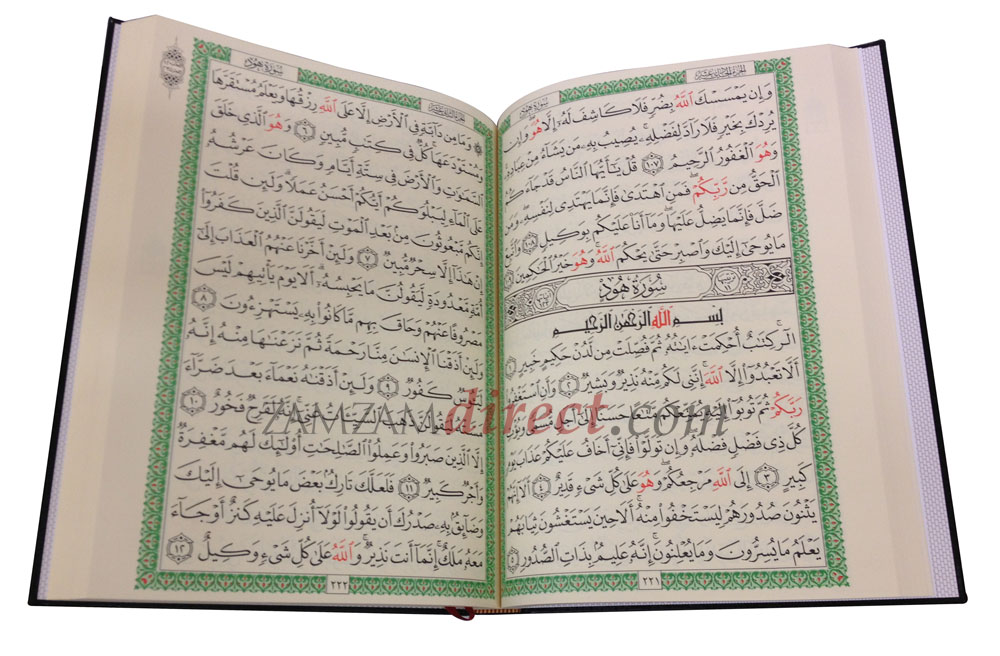 الجزء الحادي عشر
سورة هود
وَإِن يَمْسَسْكَ ٱللَّهُ بِضُرٍّ فَلَا كَاشِفَ لَهُۥٓ إِلَّا هُوَ وَإِن
يُرِدْكَ بِخَيْرٍ فَلَا رَآدَّ لِفَضْلِهِۦ يُصِيبُ بِهِۦ مَن يَشَآءُ مِنْ عِبَادِهِۦ
وَهُوَ ٱلْغَفُورُ ٱلرَّحِيمُ ١٠٧ قُلْ يَٰٓأَيُّهَا ٱلنَّاسُ قَدْ جَآءَكُمُ
ٱلْحَقُّ مِن رَّبِّكُمْ فَمَنِ ٱهْتَدَىٰ فَإِنَّمَا يَهْتَدِى لِنَفْسِهِۦ وَمَن
ضَلَّ فَإِنَّمَا يَضِلُّ عَلَيْهَا وَمَآ أَنَا۠ عَلَيْكُم بِوَكِيلٍ ١٠٨ وَٱتَّبِعْ
مَا يُوحَىٰٓ إِلَيْكَ وَٱصْبِرْ حَتَّىٰ يَحْكُمَ ٱللَّهُ وَهُوَ خَيْرُ ٱلْحَٰكِمِينَ
سُورَةُ هُودٍ
بِسْمِ ٱللَّهِ ٱلرَّحْمَٰنِ ٱلرَّحِيمِ
الٓر كِتَٰبٌ أُحْكِمَتْ ءَايَٰتُهُۥ ثُمَّ فُصِّلَتْ مِن لَّدُنْ حَكِيمٍ خَبِيرٍ ١
أَلَّا تَعْبُدُوٓا۟ إِلَّا ٱللَّهَ إِنَّنِى لَكُم مِّنْهُ نَذِيرٌ وَبَشِيرٌ ٢ وَأَنِ ٱسْتَغْفِرُوا۟
رَبَّكُمْ ثُمَّ تُوبُوٓا۟ إِلَيْهِ يُمَتِّعْكُم مَّتَٰعًا حَسَنًا إِلَىٰٓ أَجَلٍ مُّسَمًّى وَيُؤْتِ
كُلَّ ذِى فَضْلٍ فَضْلَهُۥ وَإِن تَوَلَّوْا۟ فَإِنِّىٓ أَخَافُ عَلَيْكُمْ عَذَابَ يَوْمٍ
كَبِيرٍ ٣ إِلَى ٱللَّهِ مَرْجِعُكُمْ وَهُوَ عَلَىٰ كُلِّ شَىْءٍ قَدِيرٌ ٤ أَلَآ إِنَّهُمْ
يَثْنُونَ صُدُورَهُمْ لِيَسْتَخْفُوا۟ مِنْهُ أَلَا حِينَ يَسْتَغْشُونَ ثِيَابَهُمْ
يَعْلَمُ مَا يُسِرُّونَ وَمَا يُعْلِنُونَ إِنَّهُۥ عَلِيمٌۢ بِذَاتِ ٱلصُّدُورِ ٥
٢٢١
سورة هود
وَمَا مِن دَآبَّةٍ فِى ٱلْأَرْضِ إِلَّا عَلَى ٱللَّهِ رِزْقُهَا وَيَعْلَمُ مُسْتَقَرَّهَا
وَمُسْتَوْدَعَهَا كُلٌّ فِى كِتَٰبٍ مُّبِينٍ ٦ وَهُوَ ٱلَّذِى خَلَقَ
ٱلسَّمَٰوَٰتِ وَٱلْأَرْضَ فِى سِتَّةِ أَيَّامٍ وَكَانَ عَرْشُهُۥ
عَلَى ٱلْمَآءِ لِيَبْلُوَكُمْ أَيُّكُمْ أَحْسَنُ عَمَلًا وَلَئِن قُلْتَ
إِنَّكُم مَّبْعُوثُونَ مِنۢ بَعْدِ ٱلْمَوْتِ لَيَقُولَنَّ ٱلَّذِينَ كَفَرُوٓا۟
إِنْ هَٰذَآ إِلَّا سِحْرٌ مُّبِينٌ ٧ وَلَئِنْ أَخَّرْنَا عَنْهُمُ ٱلْعَذَابَ إِلَىٰٓ
أُمَّةٍ مَّعْدُودَةٍ لَّيَقُولُنَّ مَا يَحْبِسُهُۥٓ أَلَا يَوْمَ يَأْتِيهِمْ لَيْسَ
مَصْرُوفًا عَنْهُمْ وَحَاقَ بِهِم مَّا كَانُوا۟ بِهِۦ يَسْتَهْزِءُونَ ٨
وَلَئِنْ أَذَقْنَا ٱلْإِنسَٰنَ مِنَّا رَحْمَةً ثُمَّ نَزَعْنَٰهَا مِنْهُ إِنَّهُۥ
لَيَـُٔوسٌ كَفُورٌ ٩ وَلَئِنْ أَذَقْنَٰهُ نَعْمَآءَ بَعْدَ ضَرَّآءَ
مَسَّتْهُ لَيَقُولَنَّ ذَهَبَ ٱلسَّيِّـَٔاتُ عَنِّىٓ إِنَّهُۥ لَفَرِحٌ فَخُورٌ ١٠
إِلَّا ٱلَّذِينَ صَبَرُوا۟ وَعَمِلُوا۟ ٱلصَّٰلِحَٰتِ أُو۟لَٰٓئِكَ لَهُم مَّغْفِرَةٌ
وَأَجْرٌ كَبِيرٌ ١١ فَلَعَلَّكَ تَارِكٌۢ بَعْضَ مَا يُوحَىٰٓ إِلَيْكَ
وَضَآئِقٌۢ بِهِۦ صَدْرُكَ أَن يَقُولُوا۟ لَوْلَآ أُنزِلَ عَلَيْهِ كَنزٌ أَوْ جَآءَ
مَعَهُۥ مَلَكٌ إِنَّمَآ أَنتَ نَذِيرٌ وَٱللَّهُ عَلَىٰ كُلِّ شَىْءٍ وَكِيلٌ ١٢
٢٢٢
ZAMZAMdirect.com